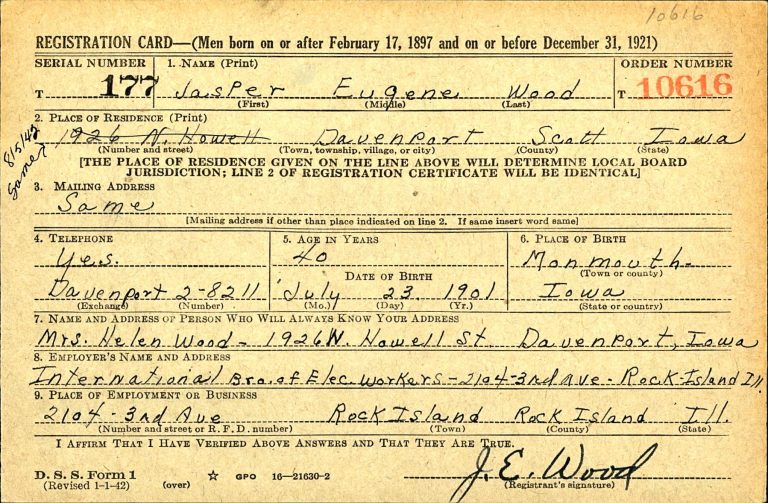 10616
REGISTRATION CARD—(Men born on or after February 17, 1897 and on or before December 31, 1921)
SERIAL NUMBER 1. NAME (Print) ORDER NUMBER
T 177 Jasper Eugene Wood T 10616
(First) (Middle) (Last)
2. PLACE OF RESIDENCE (Print)
1926 N. Howell Davenport Scott Iowa
(Number and street) (Town, township, village, or city) (County) (State)
8/5/42
Same
[THE PLACE OF RESIDENCE GIVEN ON THE LINE ABOVE WILL DETERMINE LOCAL BOARD
JURISDICTION; LINE 2 OF REGISTRATION CERTIFICATE WILL BE IDENTICAL]
3. MAILING ADDRESS
Same
[Mailing address if other than place indicated on line 2. If same insert word same]
4. TELEPHONE 5. AGE IN YEARS 6. PLACE OF BIRTH
Yes. 40 Monmouth-
DATE OF BIRTH (Town or county)
Davenport 2-8211 July 23 1901 Iowa
(Exchange) (Number) (Mo.) (Day) (Yr.) (State or country)
7. NAME AND ADDRESS OF PERSON WHO WILL ALWAYS KNOW YOUR ADDRESS
Mrs. Helen Wood - 1926 N. Howell St Davenport, Iowa
8. EMPLOYER'S NAME AND ADDRESS
International Bro. of Elec Workers - 2104-3rd Ave - Rock Island Ill.
9. PLACE OF EMPLOYMENT OR BUSINESS
2104-3rd Ave Rock Island Rock Island Ill.
(Number and street or R. F. D. number) (Town) (County) (State)
I AFFIRM THAT I HAVE VERIFIED ABOVE ANSWERS AND THAT THEY ARE TRUE.
J. E. Wood
D. S. S. Form 1 ☆ GPO 16—21630-2
(Revised 1-1-42) (over) (Registrant's signature)